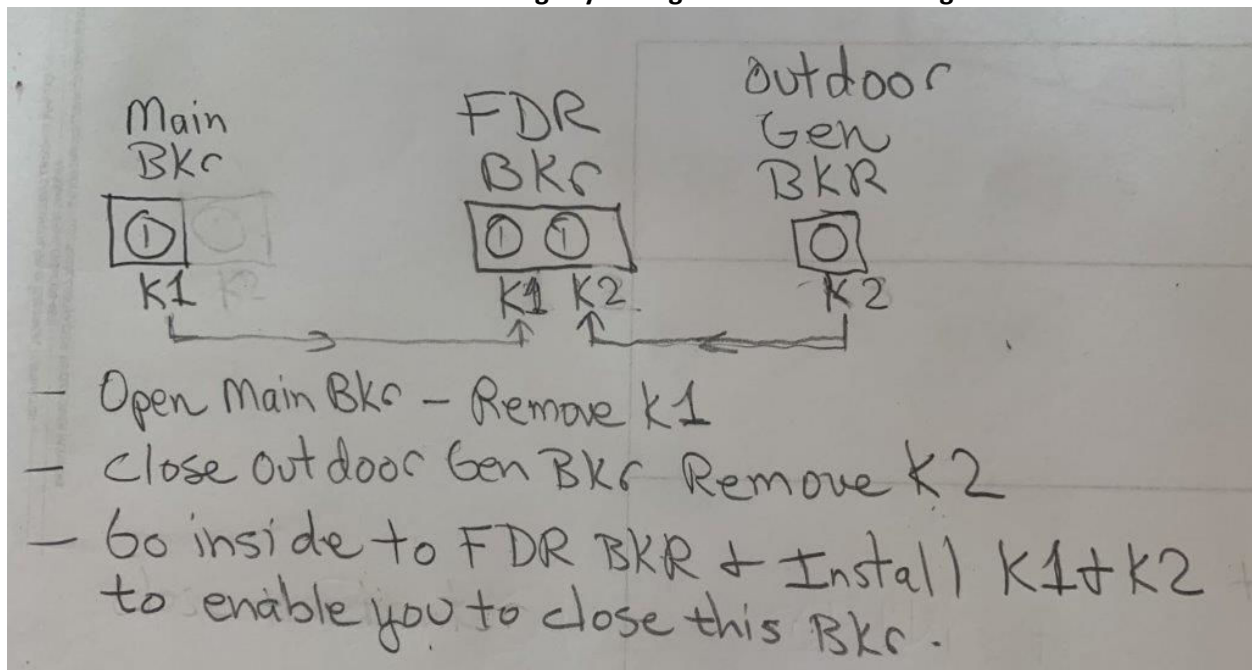 Main
BKr
K1 K2
FDR
BKr
K1 K2
Outdoor
Gen
BKR
K2
- Open Main Bkr - Remove K1
- Close Outdoor Gen BKr Remove K2
- Go inside to FDR BKR & Install K1 & K2
to enable you to close this Bkr.